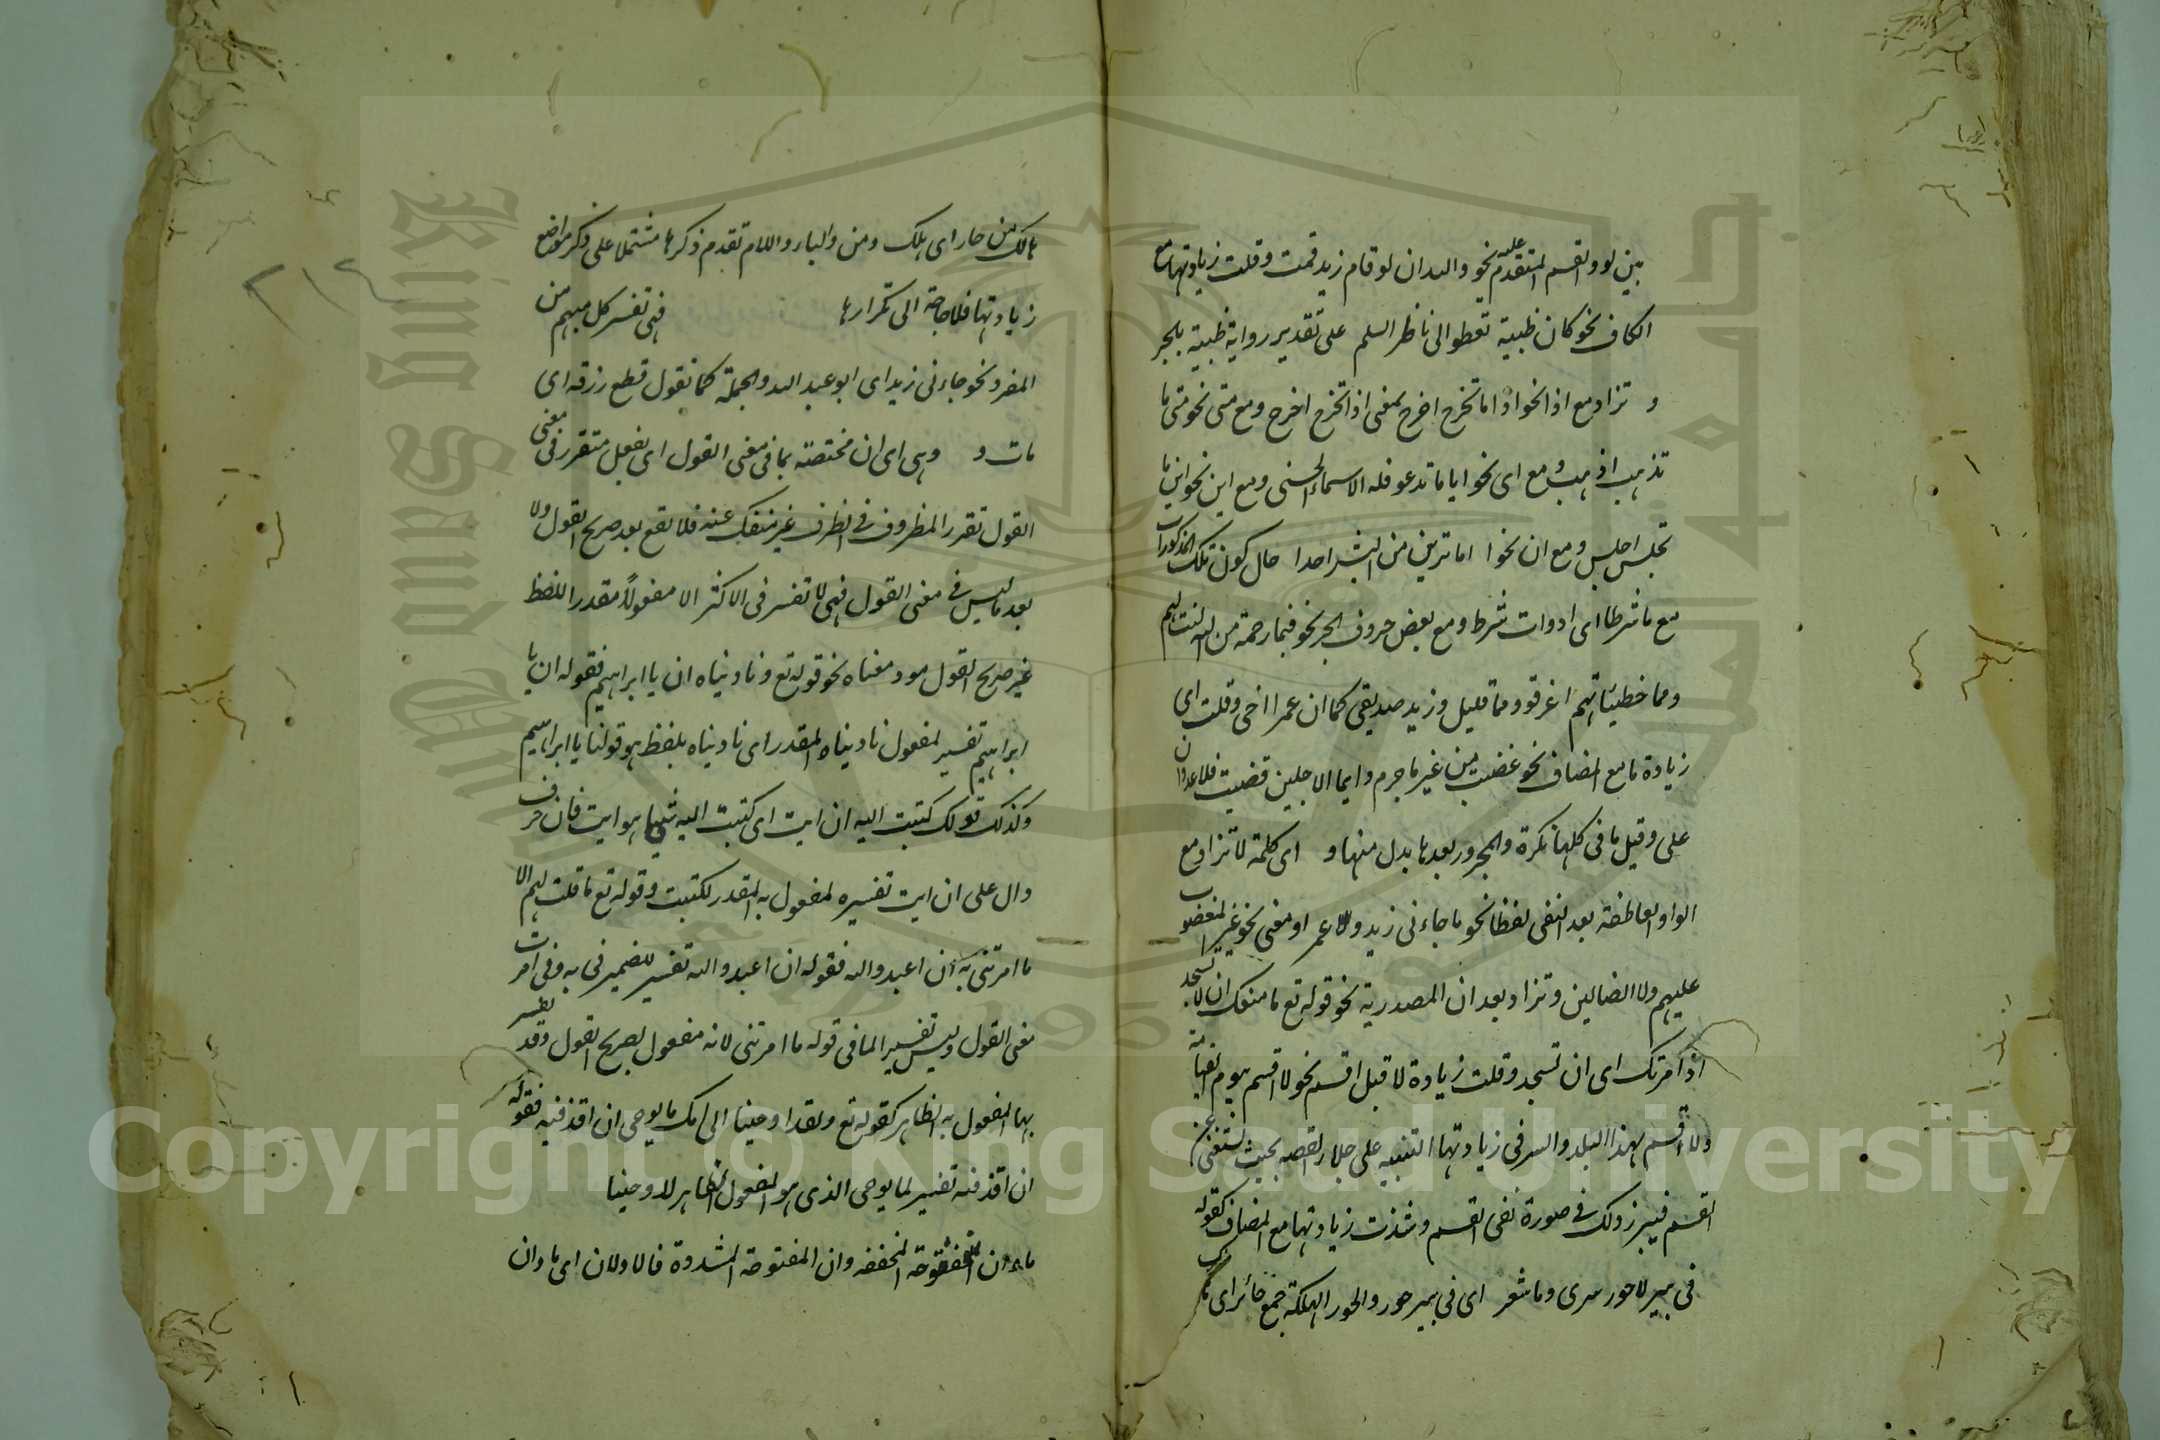 بين لو والقسم المتقدم عليه نحو والله ان لو قام زيد قمت وقلت زيادتها مع
الكاف نحو كان ظبية تعطو الى ناظر السلم على تقدير رواية ظبية بالجر
و تزاد مع اذا نحو اذاما تخرج اخرج بمعنى اذا تخرج اخرج ومع متى نحو متى ما
تذهب اذهب ومع اى نحو ايا ما تدعو فله الاسماء الحسنى ومع اين نحو اين ما
تجلس اجلس ومع ان نحو اما ترين من البشر احدا حال كون تلك المذكورات
مع ما شرطا اى ادوات شرط ومع بعض حروف الجر نحو فبما رحمة من الله لنت لهم
ومما خطيئاتهم اغرقو ومما قليل وزيد صديقى كما ان عمرا اخى وقلت اى
زيادة ما مع المضاف نحو غضبت من غير ما جرم وايما الاجلين قضيت فلا عدوان
على وقيل ما فى كلها نكرة والمجرور بعدها بدل منها و اى كلمة لا تزاد مع
الواو العاطفة بعد النفى لفظا نحو ما جاءنى زيد ولا عمر او معنى نحو غير المغضوب
عليهم ولا الضالين وتزاد بعد ان المصدرية نحو قوله تع ما منعك ان لا تسجد
اذ امرتك اى ان تسجد وقلت زيادة لا قبل اقسم نحو لا اقسم بيوم القيامة
ولا اقسم بهذا البلد والسر فى زيادتها التنبيه على جلاء القصه بحيث تستغنى عن
القسم فيبرز ذلك فى صورة نفى القسم وشذت زيادتها مع المضاف كقوله
فى بير لا حور سرى وما شعر اى فى بير حور والحور الهلكة جمع حائر اى هالك
هالك من حار اى هلك ومن والباء واللام تقدم ذكرها مشتملا على ذكر مواضع
زيادتها فلا حاجة الى تكرارها فهى تفسر كل مبهم من
المفرد نحو جاءنى زيد اى ابو عبد الله والجملة كما تقول قطع رزقه اى
مات و وهى اى ان مختصة بما فى معنى القول اى بفعل متقرر فى معنى
القول تقرر المظروف فى الظرف غير منفك عنه فلا تقع بعد صريح القول ولا
بعد ما ليس فى معنى القول فهى لا تفسر فى الاكثر الا مفعولاً مقدرا للفظ
غير صريح القول مود معناه نحو قوله تع وناديناه ان يا ابراهيم فقوله ان يا
ابراهيم تفسير لمفعول ناديناه المقدر اى ناديناه بلفظ هو قولنا يا ابراهيم
وكذلك قولك كتبت اليه ان ايت اى كتبت اليه شيئا هو ايت فان حرف
دال على ان ايت تفسيره لمفعول به المقدر لكتبت وقوله تع ما قلت لهم الا
ما امرتنى به ان اعبدو الله فقوله ان اعبدو الله تفسير للضمير فى به وفى امرت
معنى القول وليس تفسيرا لما فى قوله ما امرتنى لانه مفعول لصريح القول وقد يفسر
بها المفعول به الظاهر كقوله تع ولقد اوحينا الى امك ما يوحى ان اقذفيه فقوله
ان اقذفيه تفسير لما يوحى الذى هو المفعول الظاهر لاوحينا
ما وان المفتوحة المخففه وان المفتوحة المشددة فالاولان اى ما وان